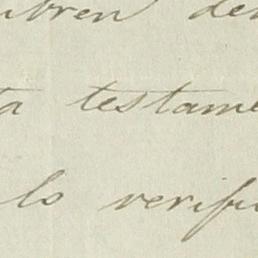 ubren den
ta testame
lo verifi